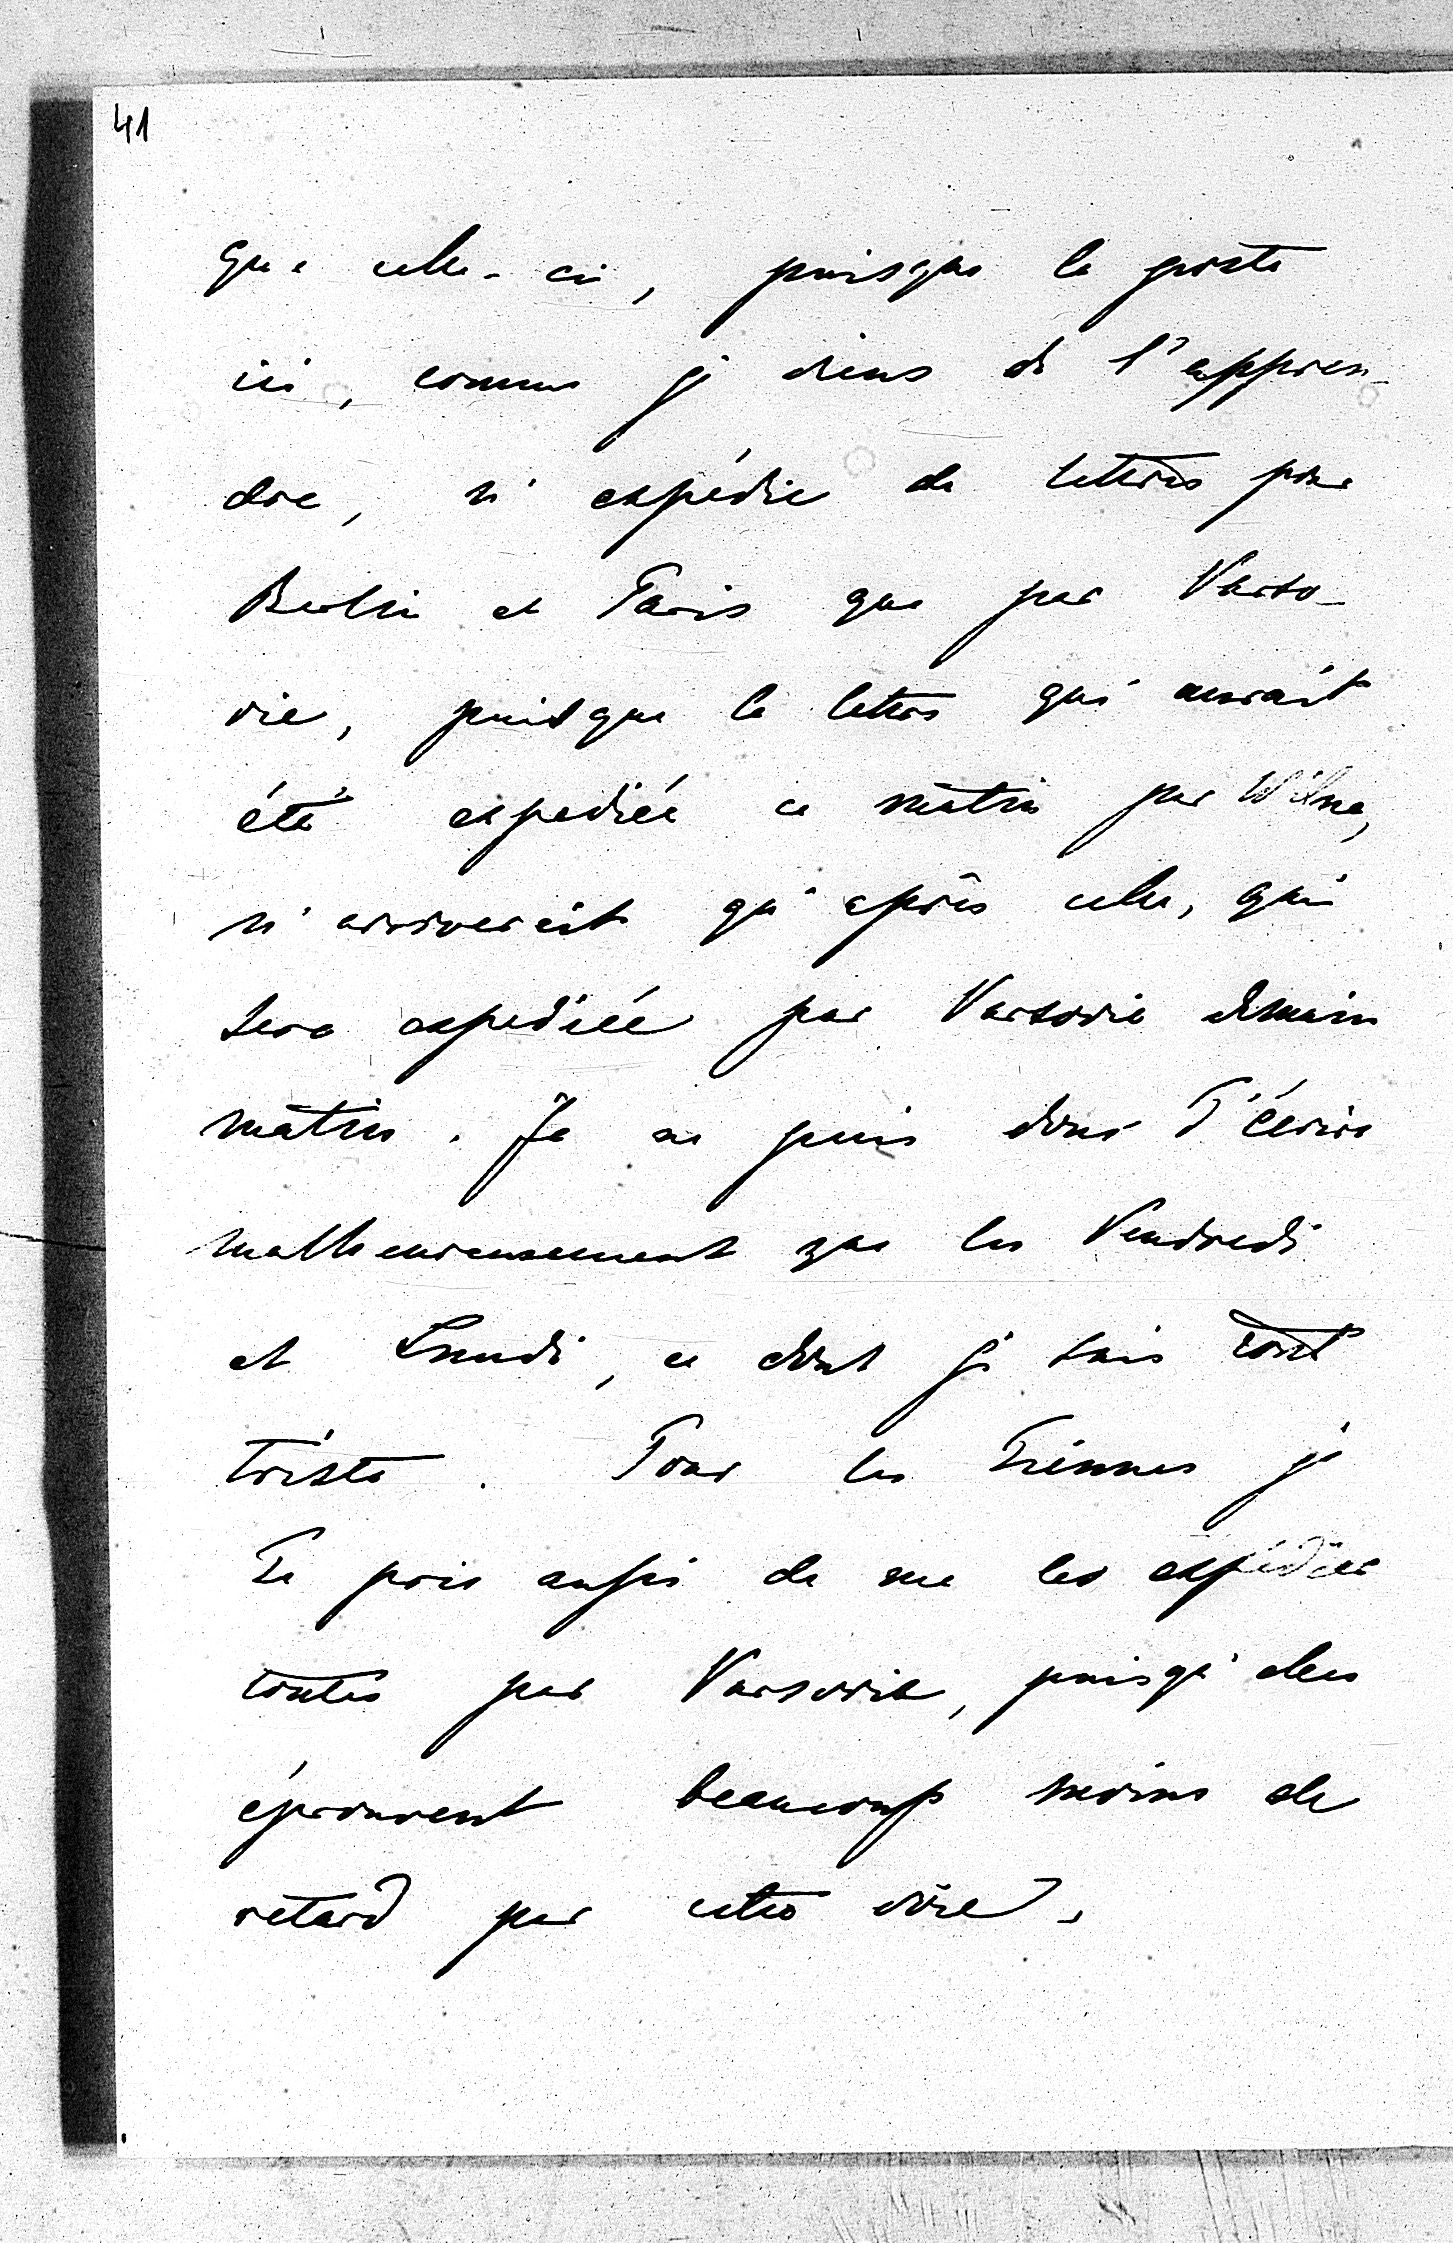 41
que celle-ci, puisque la poste
ici, comme je viens de l'appren-
dre, n'expédie de lettres pour
Berlin et Paris que par Varso-
vie, puisque la lettre qui aurait
été expediée ce matin par Wilna,
n'arriverait qu'après celle, qui
sera expediée par Varsovie demain
matin. Je ne puis donc T'écrire
malheureusement que les Vendredi
et Lundi, ce dont je suis tout
triste. Pour les Tiennes je
Te prie aussi de me les expédier
toutes par Varsovie, puisqu'elles
éprouvent beaucoup moins de
retard par cette voie.